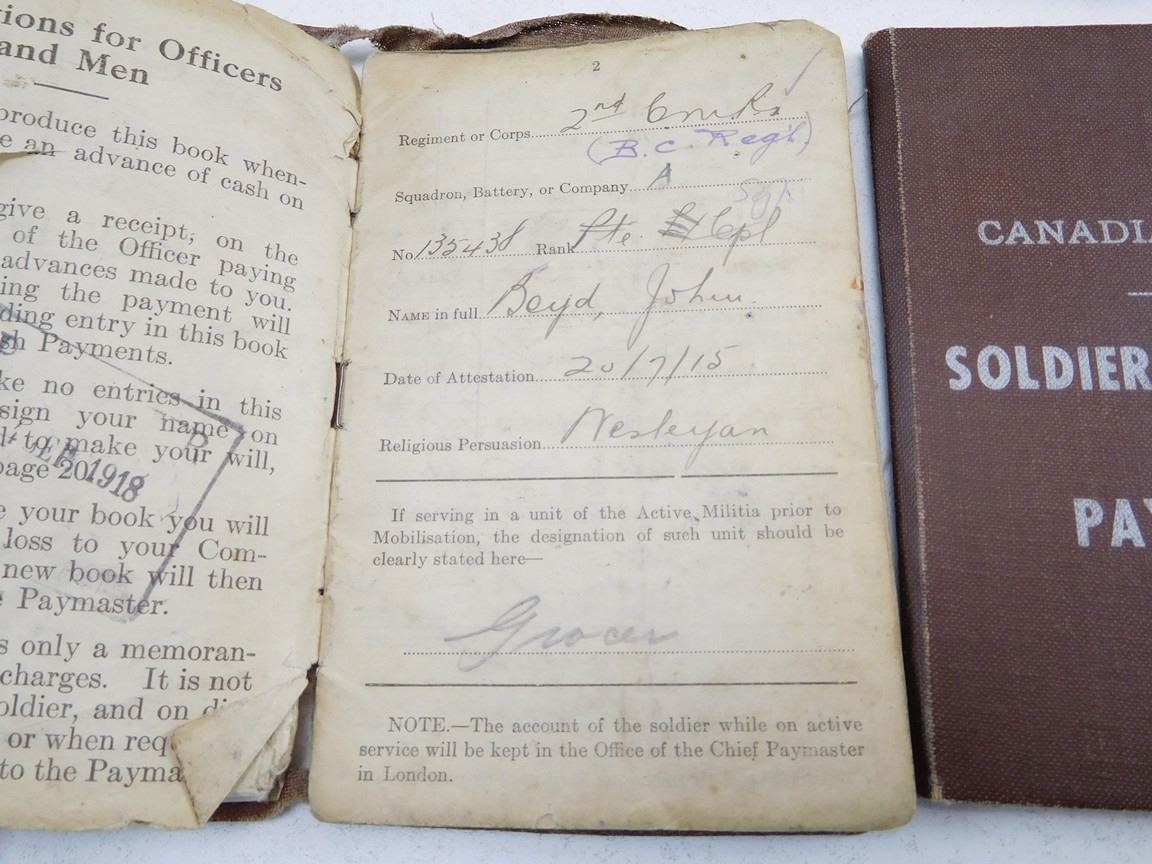 tions for Officers
and Men
produce this book when-
e an advance of cash on
give a receipt, on the
of the Officer paying
advances made to you.
ing the payment will
ding entry in this book
sh Payments.
ke no entries in this
sign your name on
to make your will,
page 20.
1918
e your book you will
loss to your Com-
new book will then
e Paymaster.
s only a memoran-
charges. It is not
oldier, and on di
or when req
to the Payma
2
Regiment or Corps 2nd
(B.C. Regt.)
Squadron, Battery, or Company A
Sgt
No. 135438 Rank Pte Cpl
NAME in full Boyd, John.
Date of Attestation 20/7/15
Religious Persuasion Wesleyan
If serving in a unit of the Active Militia prior to
Mobilisation, the designation of such unit should be
clearly stated here—
Grocer
NOTE.—The account of the soldier while on active
service will be kept in the Office of the Chief Paymaster
in London.
CANADI
SOLDIER
PAY